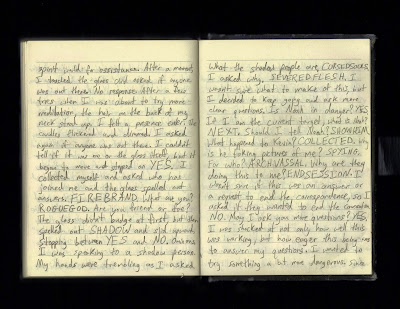 spirit world for assistance. After a moment,
I touched the glass and asked if anyone
was out there. No response. After a few
tries when I was about to try more
meditation, the hair on the back of my
neck stood up. I felt a presence. The
candles flickered and dimmed. I asked
again if anyone was out there. I couldn't
tell if it was me or the glass itself, but it
began to move and stopped on YES. I
collected myself and asked who has
joined me and the glass spelled out
answers. FIREBRAND. What are you?
ROGUEGOD. Are you friend or foe?
The glass didn't budge at first but then
spelled out SHADOW and slid upward
stopping between YES and NO.
I was speaking to a shadow person.
My hands were trembling as I asked
what the shadow people are, CURSEDSOULS.
I asked why, SEVEREDFLESH. I
wasn't sure what to make of this, but
I decided to keep going and ask more
clear questions. Is Noah in danger? YES.
If I am the current target, who is that?
NEXT. Should I tell Noah? SHOWHIM
What happened to Kevin? COLLECTED. Why
is he taking pictures of me? SPYING.
For who? ARCHVASSAL. Why are they
doing this to me? ENDSESSION. I
wasn't sure if this was an answer or
a request to end the correspondence, so I
asked if they wanted to end the connection
NO. May I ask you more questions? YES.
I was shocked at not only how well this
was working, but how eager this being was
to answer my questions. I wanted to
try something a bit more dangerous, since